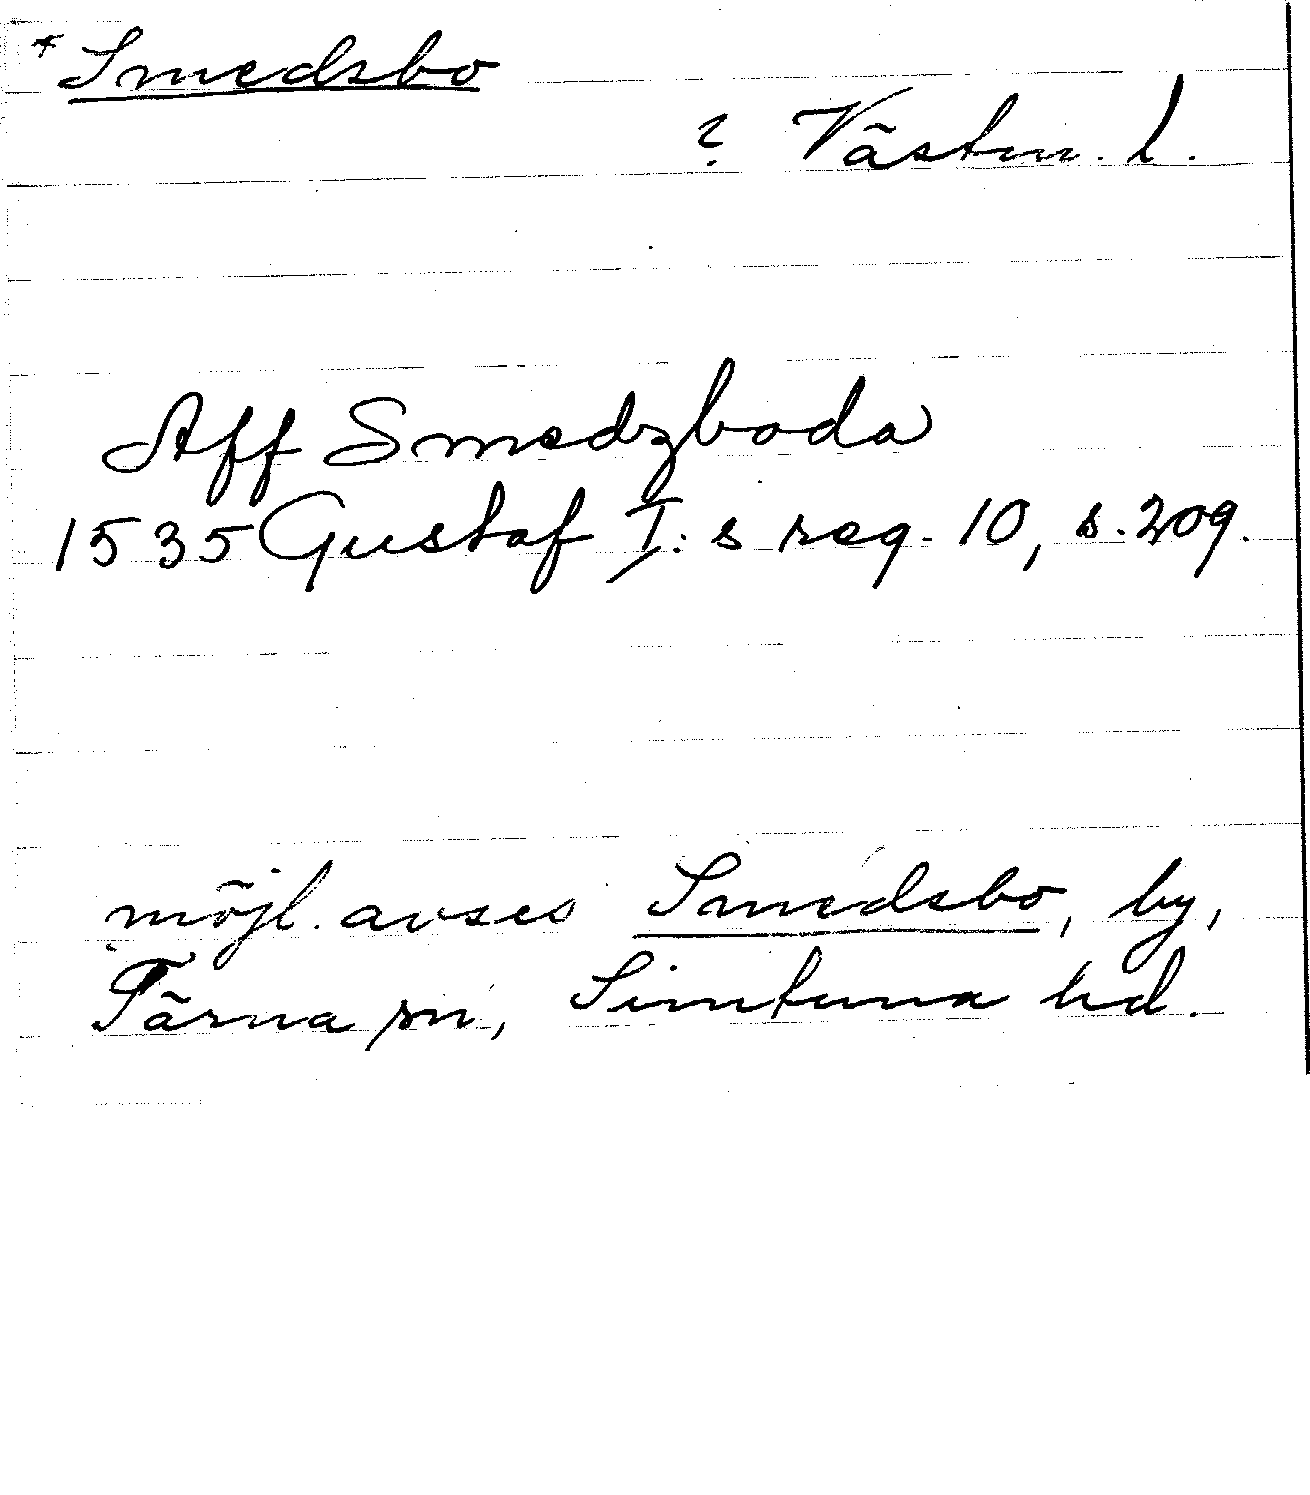 * Smedsbo
? Västm. l.
Aff Smedzboda
1535 Gustaf I:s reg. 10, s. 209.
möjl. avses Smedsbo, by,
Tärna sn, Simtuna hd.